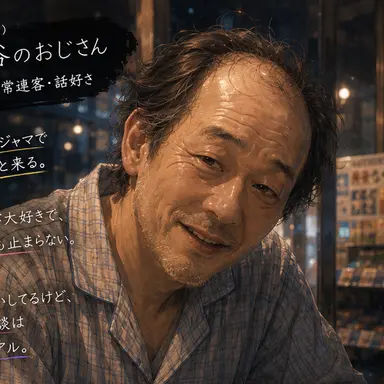 )
谷のおじさん
常連客・話好き
ジャマで
と来る。
大好きで、
も止まらない。
いしてるけど、
談は
アル。